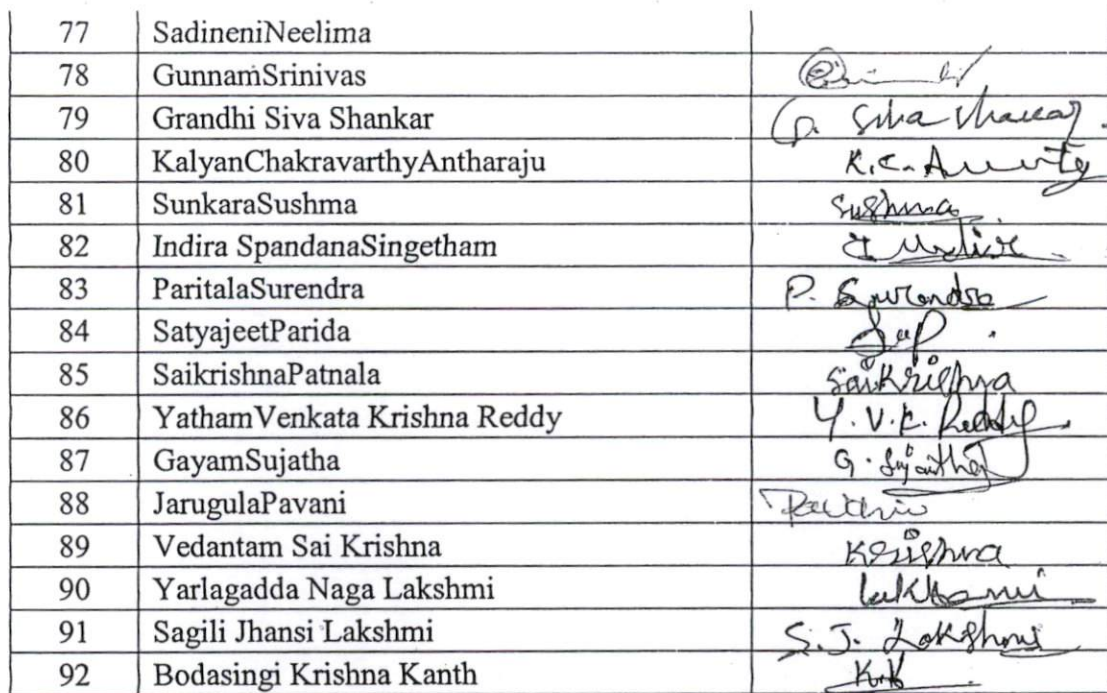 77 SadineniNeelima
78 GunnamSrinivas
79 Grandhi Siva Shankar G. Siva Shankar
80 KalyanChakravarthyAntharaju K.C.
81 SunkaraSushma Sushma
82 Indira SpandanaSingetham
83 ParitalaSurendra P. Surendra
84 SatyajeetParida
85 SaikrishnaPatnala SaiKrishna
86 YathamVenkata Krishna Reddy Y.V.K. Reddy
87 GayamSujatha G. Sujatha
88 JarugulaPavani
89 Vedantam Sai Krishna Krishna
90 Yarlagadda Naga Lakshmi
91 Sagili Jhansi Lakshmi S.J. Lakshmi
92 Bodasingi Krishna Kanth